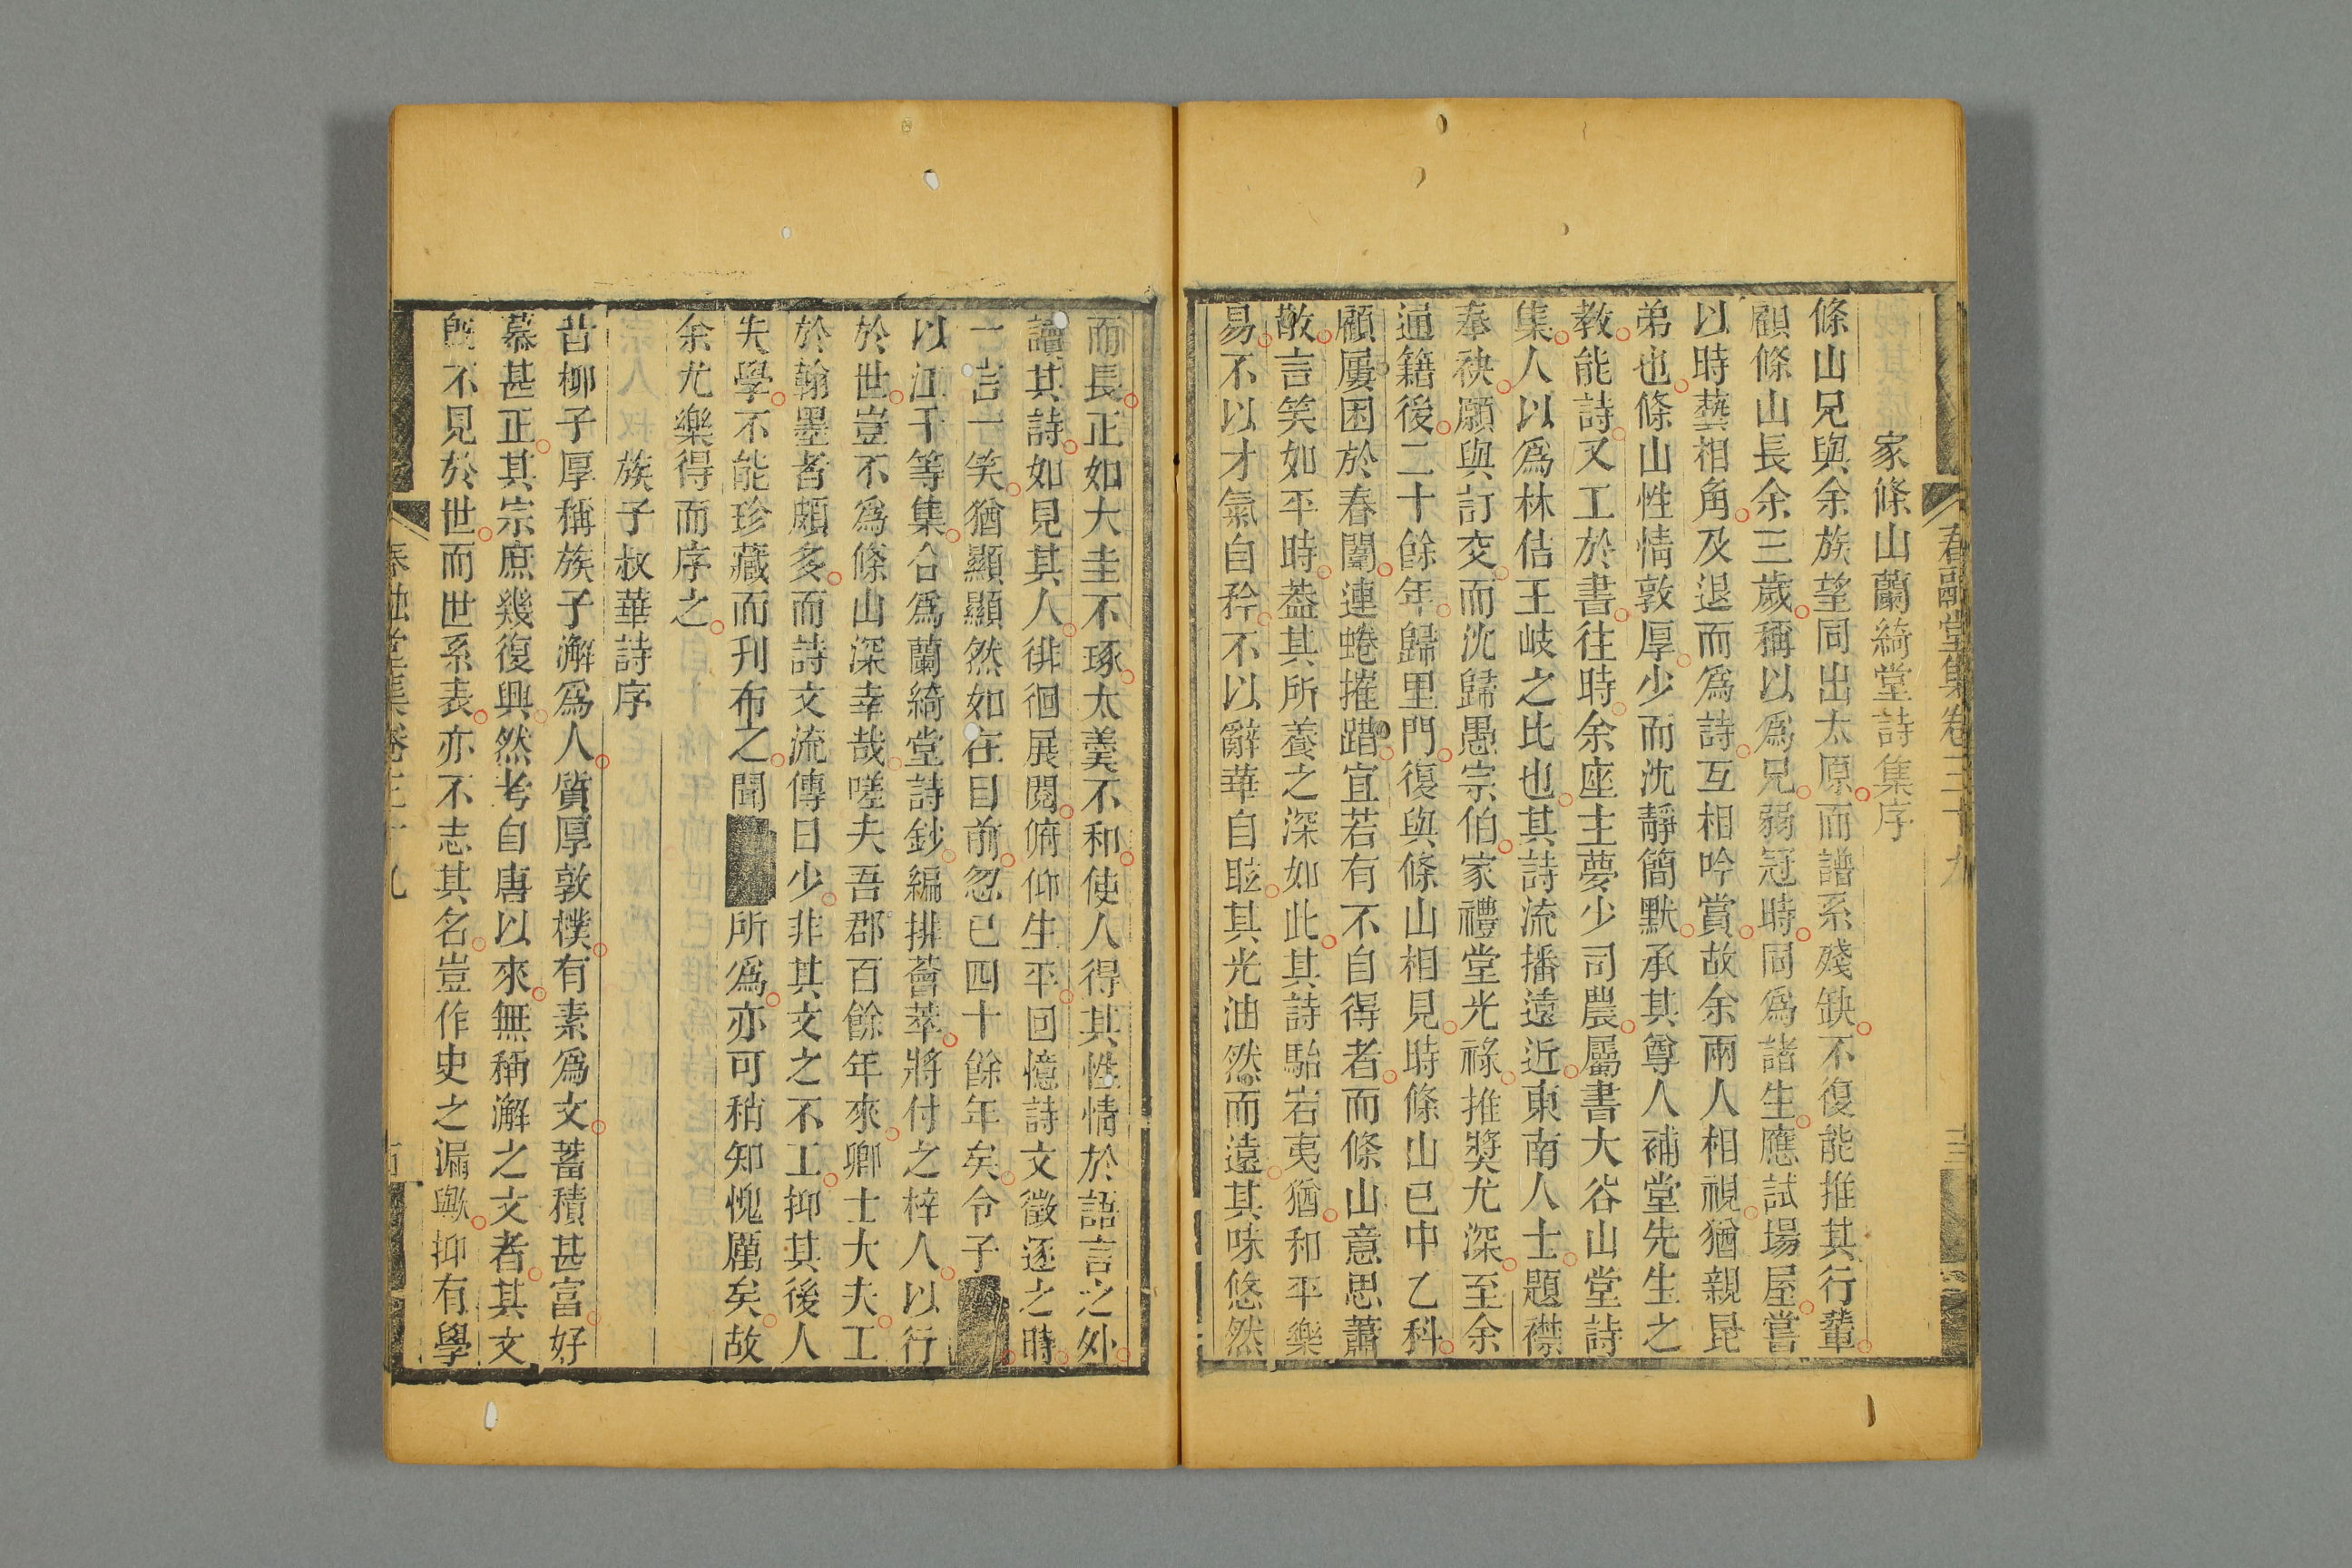 春融堂集卷三十九
家條山蘭綺堂詩集序
條山兄與余族望同出太原而譜系殘缺不復能推其行輩
顧條山長余三歲稱以爲兄弱冠時同爲諸生應試場屋嘗
以時藝相角及退而爲詩互相吟賞故余兩人相視猶親昆
弟也條山性情敦厚少而沈靜簡默承其尊人補堂先生之
教能詩又工於書往時余座主夢少司農屬書大谷山堂詩
集人以爲林佶王岐之比也其詩流播遠近東南人士題襟
奉袂願與訂交而沈歸愚宗伯家禮堂光祿推獎尤深至余
通籍後二十餘年歸里門復與條山相見時條山已中乙科
顧屢困於春闈連蜷摧蹭宜若有不自得者而條山意思蕭
散言笑如平時葢其所養之深如此其詩駘宕夷猶和平樂
易不以才氣自矜不以辭華自眩其光油然而遠其味悠然
而長正如大圭不琢太羹不和使人得其性情於語言之外
讀其詩如見其人徘徊展閱俯仰生平回憶詩文徵逐之時
一言一笑猶顯顯然如在目前忽已四十餘年矣令子
以江干等集合爲蘭綺堂詩鈔編排薈萃將付之梓人以行
於世豈不爲條山深幸哉嗟夫吾郡百餘年來卿士大夫工
於翰墨者頗多而詩文流傳日少非其文之不工抑其後人
失學不能珍藏而刊布之聞所爲亦可稍知愧厲矣故
余尤樂得而序之
族子叔華詩序
昔柳子厚稱族子澥爲人質厚敦樸有素爲文蓄積甚富好
慕甚正其宗庶幾復興然考自唐以來無稱澥之文者其文
旣不見於世而世系表亦不志其名豈作史之漏歟抑有學
春融堂集卷三十九